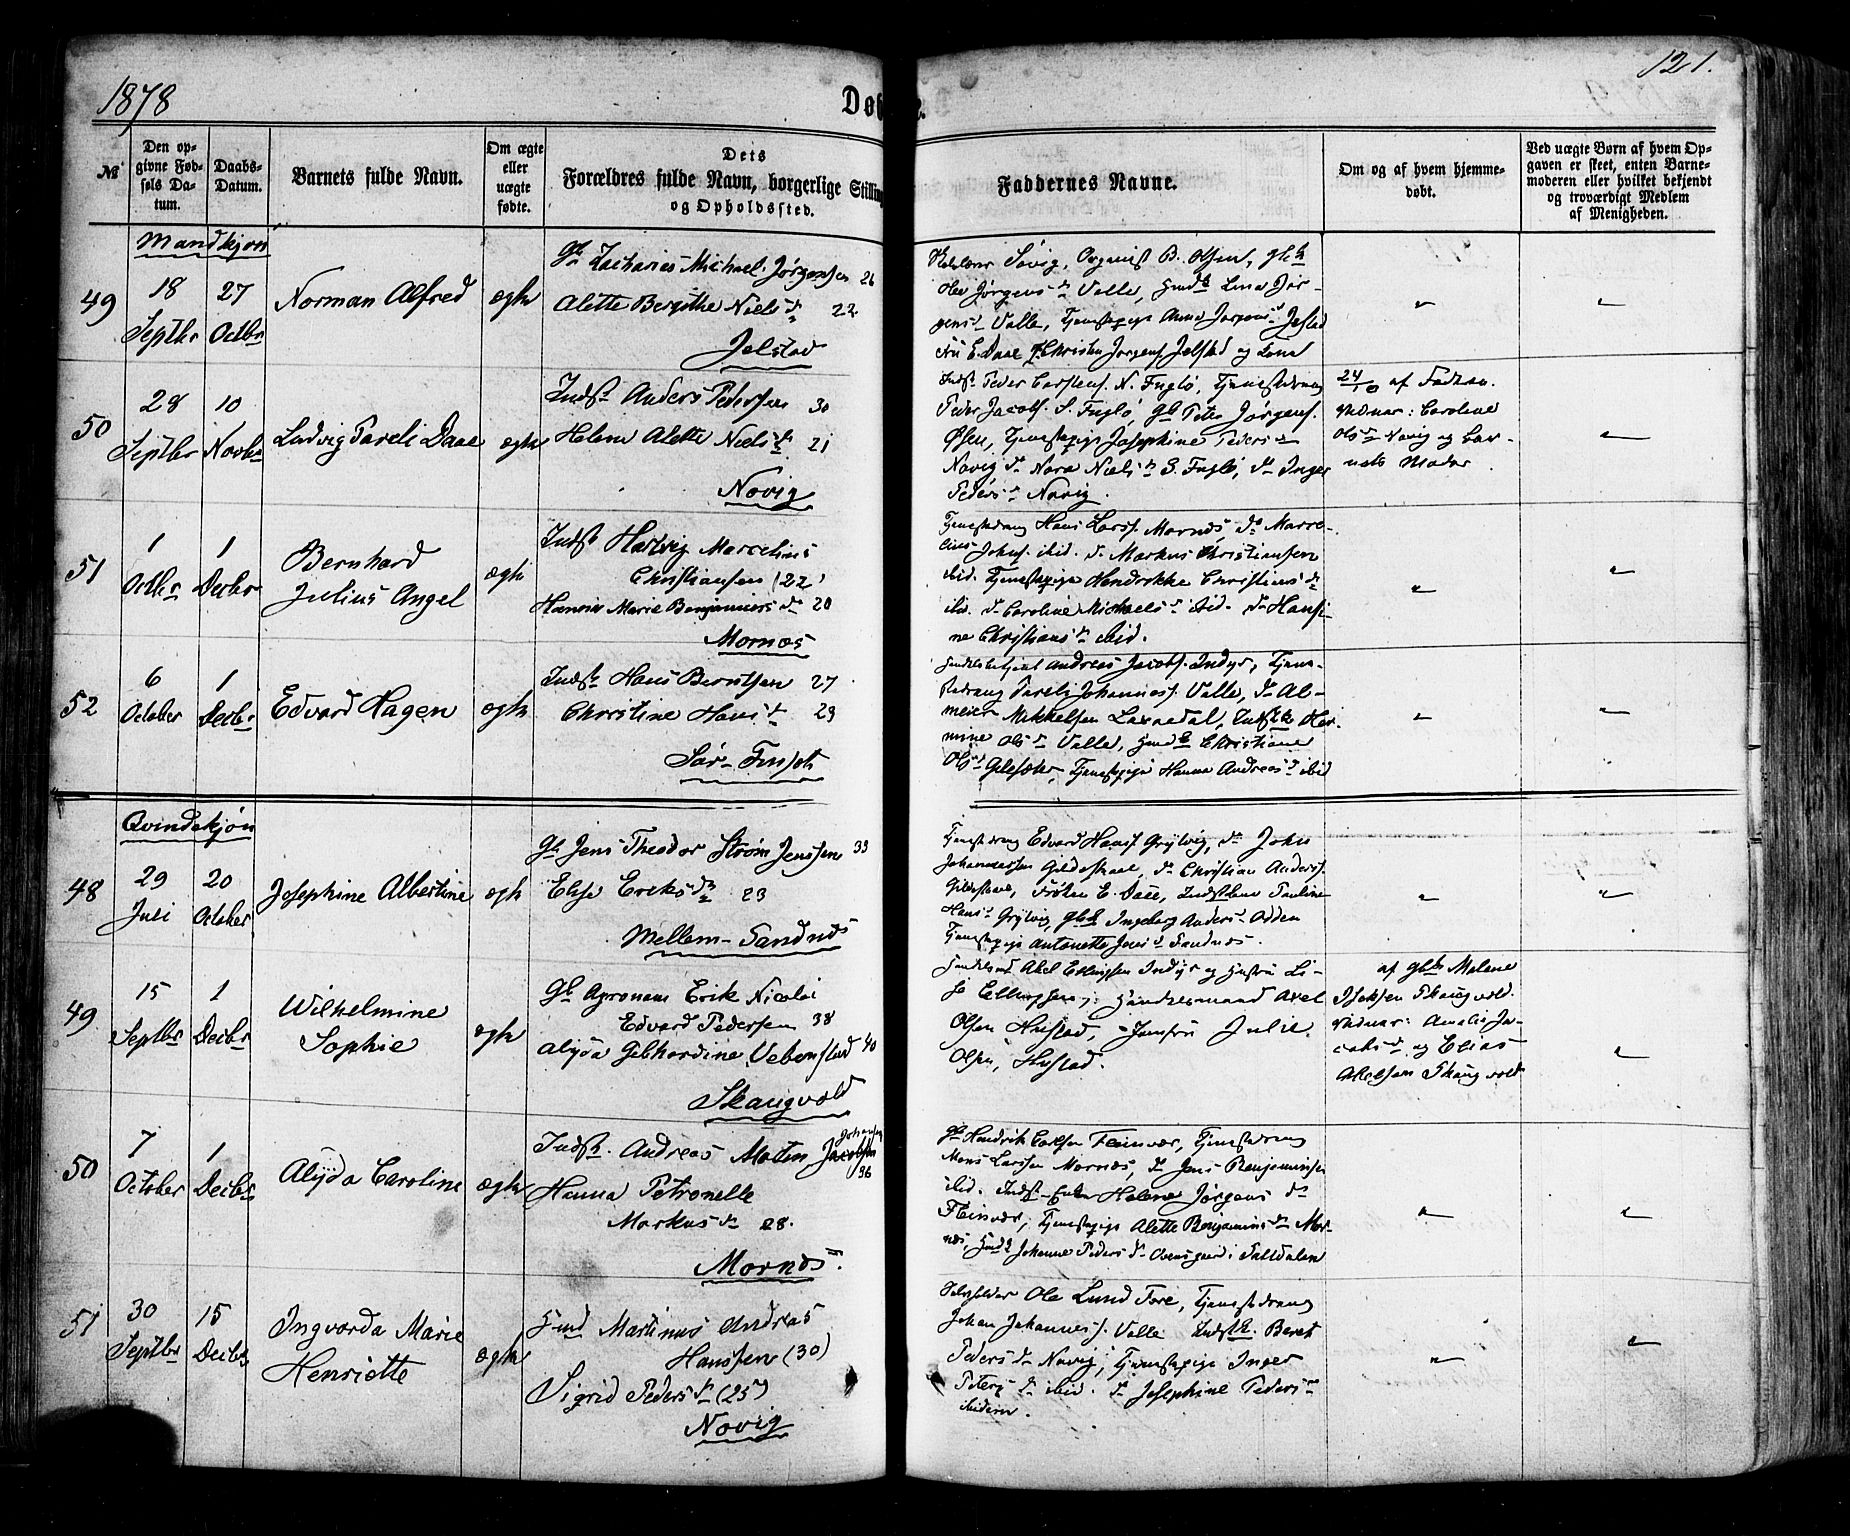 1878
Døbte.
121.
№
Den opgivne Fødsels Datum.
Daabs-Datum.
Barnets fulde Navn.
Om ægte eller uægte fødte.
Dets Forældres fulde Navn, borgerlige Stilling og Opholdssted.
Faddernes Navne.
Om og af hvem hjemmedøbt.
Ved uægte Børn af hvem Opgaven er skeet, enten Barnemoderen eller hvilket bekjendt og troværdigt Medlem af Menigheden.
Mandkjøn
49
18 Septbr
27 Octbr
Norman Alfred
ægte
Gb Zacharias Michael Jørgensen 26
Alette Bergithe Niels d. 22
Jelstad
Søvig, Organist B. Olsen, gbk
Jørgens Valle, Lina Jør-
gens d Valle, Tjenestepige Anna Jørgens d Jelstad
E. Daae Christen Jørgens. Jelstad og Lona
50
28 Septbr
10 Novbr
Ludvig Pareli Daae
ægte
Indst Anders Pedersen 30
Helene Alette Niels d. 21
Novig
Indst Peder Carstens. N. Fuglø, Tjenestedreng
Peder Jacobs. S. Fuglø, Gb Peter Jørgens.
Øsen, Tjenestepige Josephine Peders d
Novig do Nora Niels d S. Fuglø, do Inger
Peders d Novig.
24/10 af Faderen.
Vidner: Caroline
Ols d Novig og Bar-
nets Moder.
51
1 Octbr
1 Decbr
Bernhard
Julius Angel
ægte
Indst Hartvig Marcelius
Christiansen (22)
Hansine Marie Benjamins d 20
Mornæs
Tjenestedreng Hans Lars. Mornæs, do Marce-
lius Johns. ibid. do Markus Christiansen
ibid. Tjenestepige Hendrikke Christians d
ibid. do Caroline Michaels d ibid. do Hansi-
ne Christians d ibid.
52
6 October
1 Decbr
Edvard Hagen
ægte
Indst Hans Berntsen 27
Christine Hans d 29
Sør-
Handelsbetjent Andreas Jacobs. Indyr, Tjene-
stedreng Pareli Johannes. Valle, do Al-
meier Mikkelsen Laxædal, Indstk Her-
mine Ols d Valle, Christiane
Ols d Gilesæter, Tjenestepige Hanna Andreas d ibid
Qvindekjøn
48
29 Juli
20 October
Josephine Albertine
ægte
Gb Jens Theodor Strøm Jenssen 33
Else Eriks d 23
Mellem-Sandnæs
Tjenestedreng Edvard Hans. Grytvig, do John
Johannessen Gildeskaal, do Christian Anders.
Gildeskaal, Frøken E. Daae, Pauline
Hans d Grytvig, gbk Ingeborg Anders d Odden
Tjenestepige Antonette Jens d Sandnæs.
49
15 Septbr
1 Decbr
Wilhelmine
Sophie
ægte
Gb Erik Nicolai
Edvard Pedersen 38
Alyda Gebhardine Vebenstad 40
Skaugvold
Axel Ellingsen Indyr og Hustru Li-
se Ellingsen, Handelsmand Axel
Olsen Hustad, Jomfru Julie
Olsen, Hustad.
af gbk Malene
Isaksen Skaugvold.
Vidner: Amalie Ja-
cobs d og Elias
Axelsen Skaugvold
50
7 October
1 Decbr
Alyda Caroline
ægte
Indst. Andreas Martin Jacobsen Johansen 36
Hanna Petronelle
Markus d 28.
Mornæs.
Gb Hendrik Carlsen Fleinvær, Tjenestedreng
Mons Larssen Mornæs, do Jens Benjaminsen
ibid. Indst-Enke Helene Jørgens d
Fleinvær, Tjenestepige Alette Benjamins d Mor-
næs, Johanne Peders d i Saltdalen
51
30 Septbr
15 Decbr
Ingvarda Marie
Henriette
ægte
Martinus Andreas
Hanssen (30)
Sigrid Peders d (25)
Novig
Ole Lund Fore, Tjenestedreng
Johan Johannes. Valle Indstk. Beret
Peders d Novig, Tjenestepige Inger
Peters d ibid. do Josephine Peders d
ibidem.